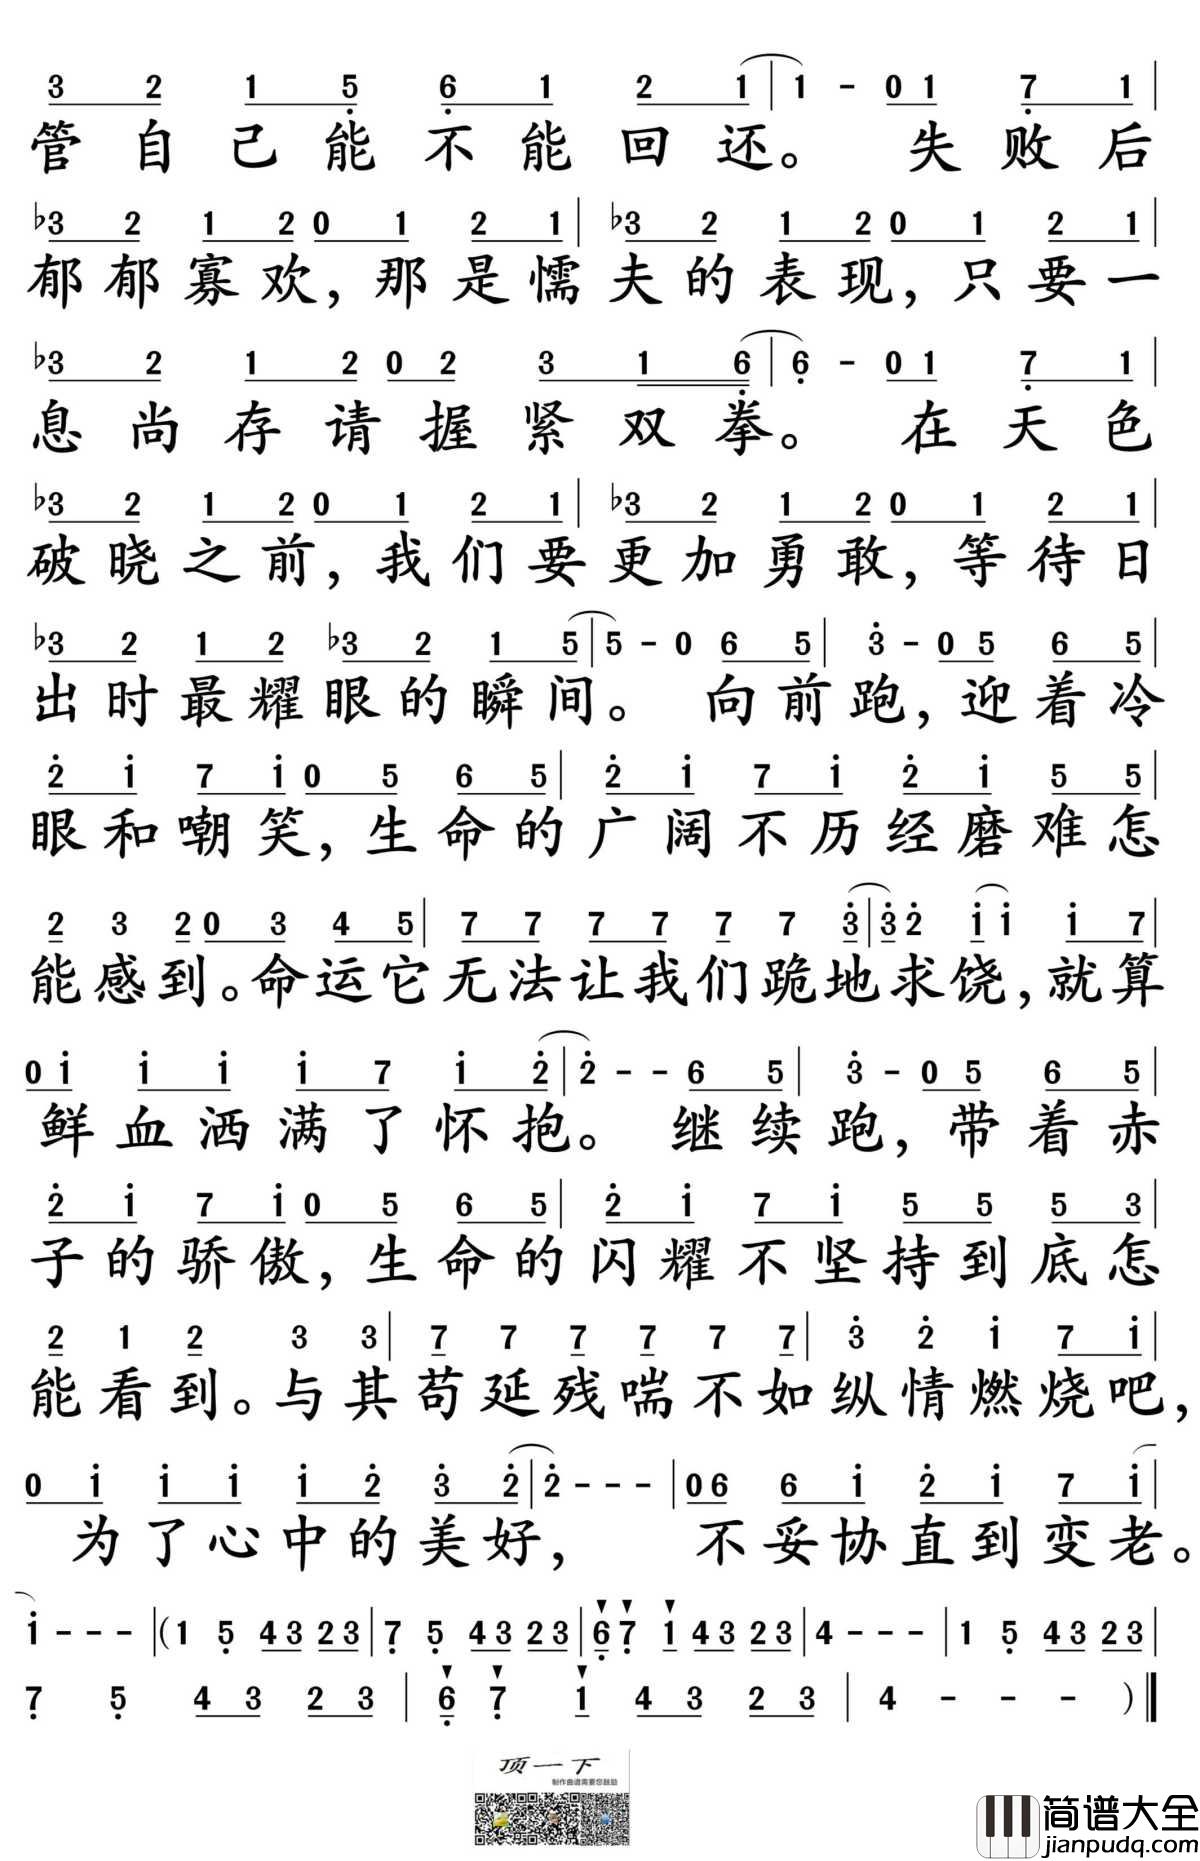 3 2 1 5 6 1 2 1 | 1 - 0 1 7 1 |
管自己能不能回还。 失败后
♭3 2 1 2 0 1 2 1 | ♭3 2 1 2 0 1 2 1 |
郁郁寡欢，那是懦夫的表现，只要一
♭3 2 1 2 0 2 3 1 6 | 6 - 0 1 7 1 |
息尚存请握紧双拳。 在天色
♭3 2 1 2 0 1 2 1 | ♭3 2 1 2 0 1 2 1 |
破晓之前，我们要更加勇敢，等待日
♭3 2 1 2 ♭3 2 1 5 | 5 - 0 6 5 | 3 - 0 5 6 5 |
出时最耀眼的瞬间。 向前跑，迎着冷
2 1 7 1 0 5 6 5 | 2 1 7 1 2 1 5 5 |
眼和嘲笑，生命的广阔不历经磨难怎
2 3 2 0 3 4 5 | 7 7 7 7 7 7 3 | 3 2 1 1 1 7 |
能感到。命运它无法让我们跪地求饶，就算
0 1 1 1 1 7 1 2 | 2 - - 6 5 | 3 - 0 5 6 5 |
鲜血洒满了怀抱。 继续跑，带着赤
2 1 7 1 0 5 6 5 | 2 1 7 1 5 5 5 3 |
子的骄傲，生命的闪耀不坚持到底怎
2 1 2 3 3 | 7 7 7 7 7 7 | 3 2 1 7 1 |
能看到。与其苟延残喘不如纵情燃烧吧，
0 1 1 1 1 2 3 2 | 2 - - - | 0 6 6 1 2 1 7 1 |
为了心中的美好， 不妥协直到变老。
1 - - - | ( 1 5 4 3 2 3 | 7 5 4 3 2 3 | 6 7 1 4 3 2 3 | 4 - - - | 1 5 4 3 2 3 |
7 5 4 3 2 3 | 6 7 1 4 3 2 3 | 4 - - - ) ‖
顶一下
制作曲谱需要您鼓励
简谱大全
jianpudq.com